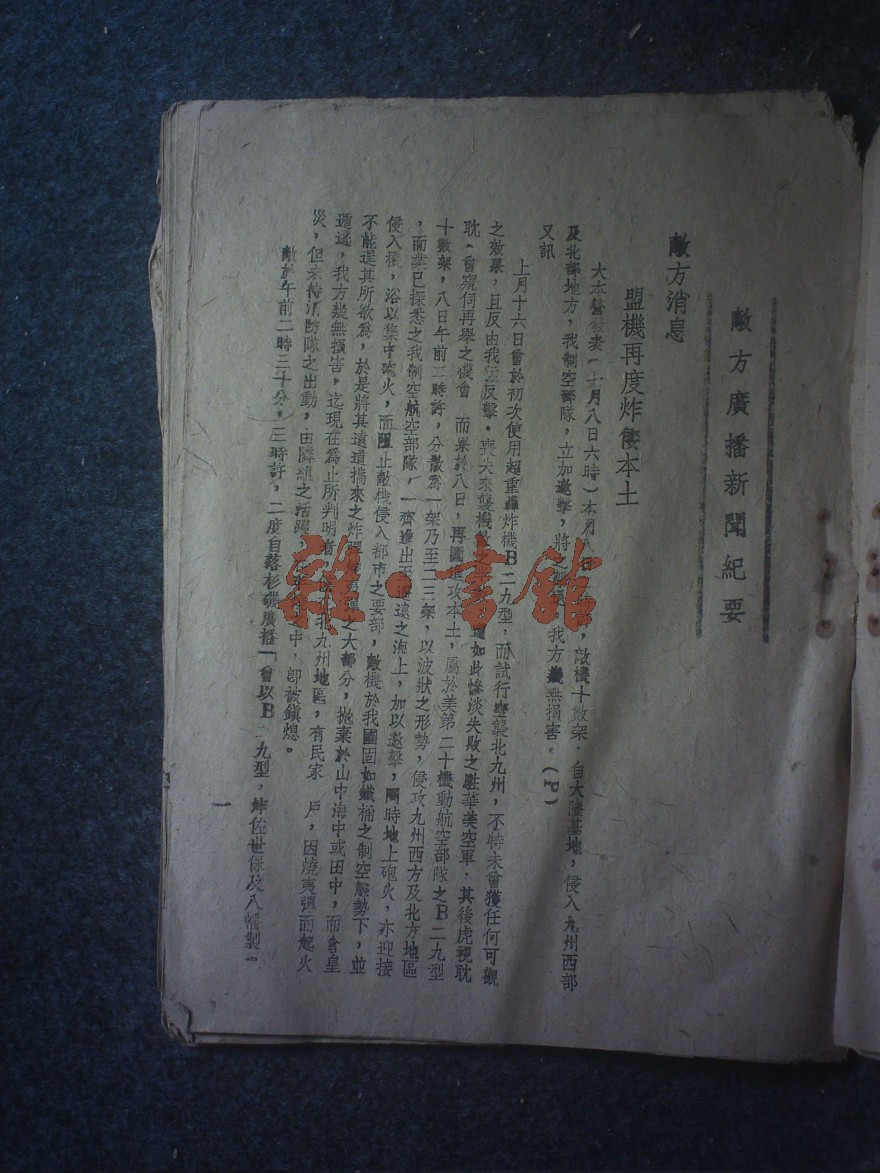 敵方廣播新聞紀要
敵方消息
盟機再度炸倭本土
大本營發表(七月八日六時)本月八日 敵機十數架,自大陸基地,侵入九州西部
及北部地方,我制空部隊,立加邀擊,將之 我方幾無損害。(P)
又訊
上月十六日曾於初次使用超重轟炸機B二九型,而試行空襲北九州,不特未曾獲任何可觀
之效果,且反由我猛反擊。喪失來襲機數之 如此慘淡失敗之駐華美空軍,其後虎視耽
耽,曾窺伺再舉之機會 而果於八日,再圖進攻本土,屬於美第二十機動航空部隊之B二九型
十數架,八日午前二時許,分散為一架乃至二三架,以波狀之形勢,侵攻九州西方及北方地區
,而業已探悉之我制空航空部隊,一齊進出 遠之海上,加以邀擊,同時地上砲火,亦迎接
侵入機,浴以集中砲火,而阻止敵機侵入都市之要部,敵機於我國固如鐵桶之制空態勢下,並
不能逞其所欲為,於是將其遠道攜來之炸彈 之大部分,拋棄於山中海中或田中,而倉皇
遁逃,我方幾無損害,迄現在為止所判明者 北九州地區,有民家 戶,因燒夷彈而起火
災,但未待消防隊之出動,由隣組之活躍, 中,卽被鎭熄。
敵於午前二時三十分,三時許,二度自落杉磯廣播「曾以B 九型,炸佐世保及八幡製
一
雜·書館